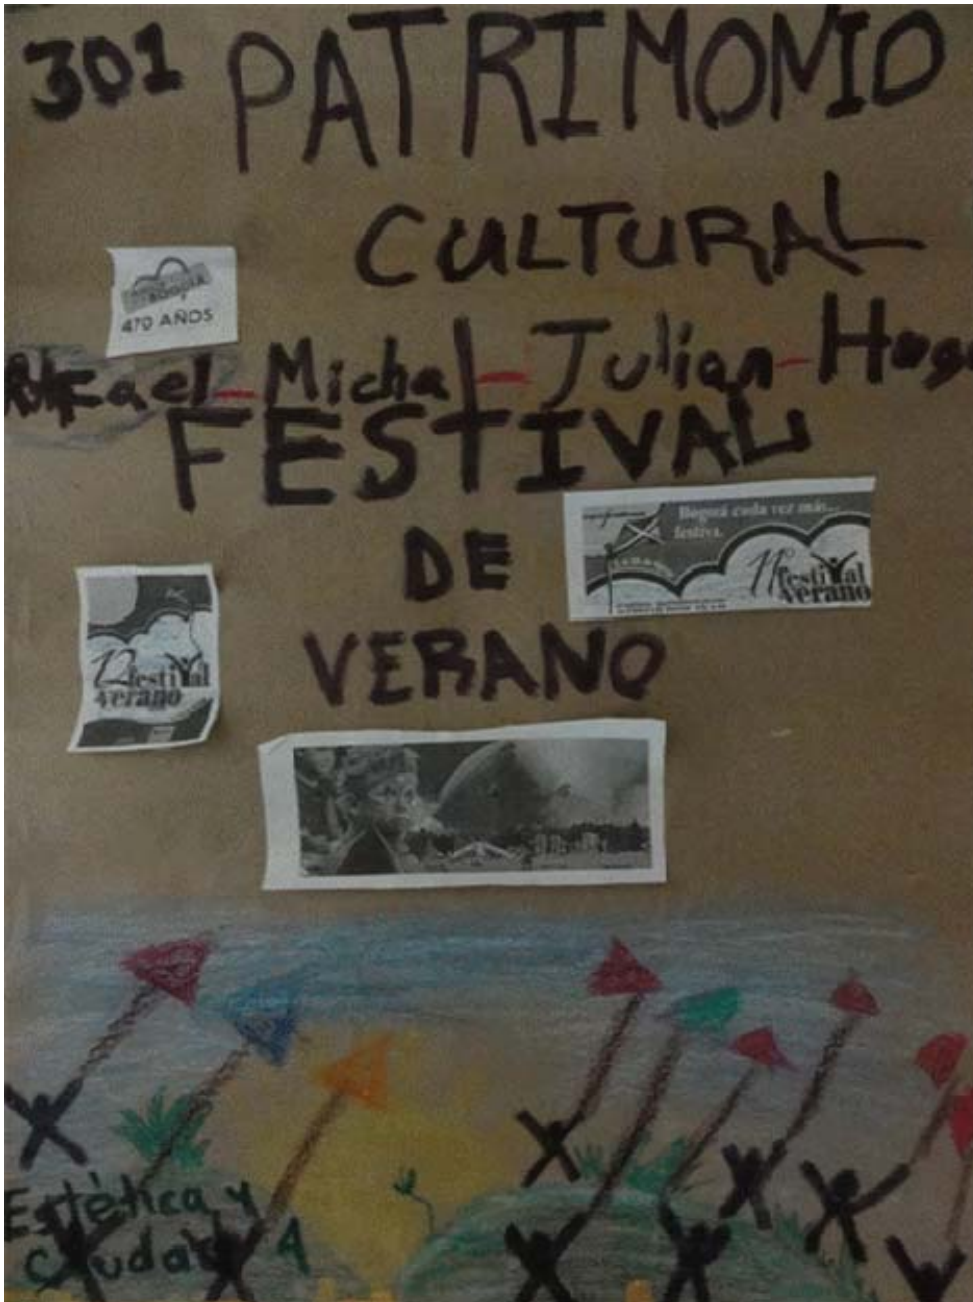 301 PATRIMONIO
CULTURAL
BOGOTÁ
470 AÑOS
Mikael - Michal - Julian - Hugo
FESTIVAL
DE
Bogotá cada vez más...
festiva.
11 festival
verano
12 festival
verano
VERANO
Estética y
Ciudad 4